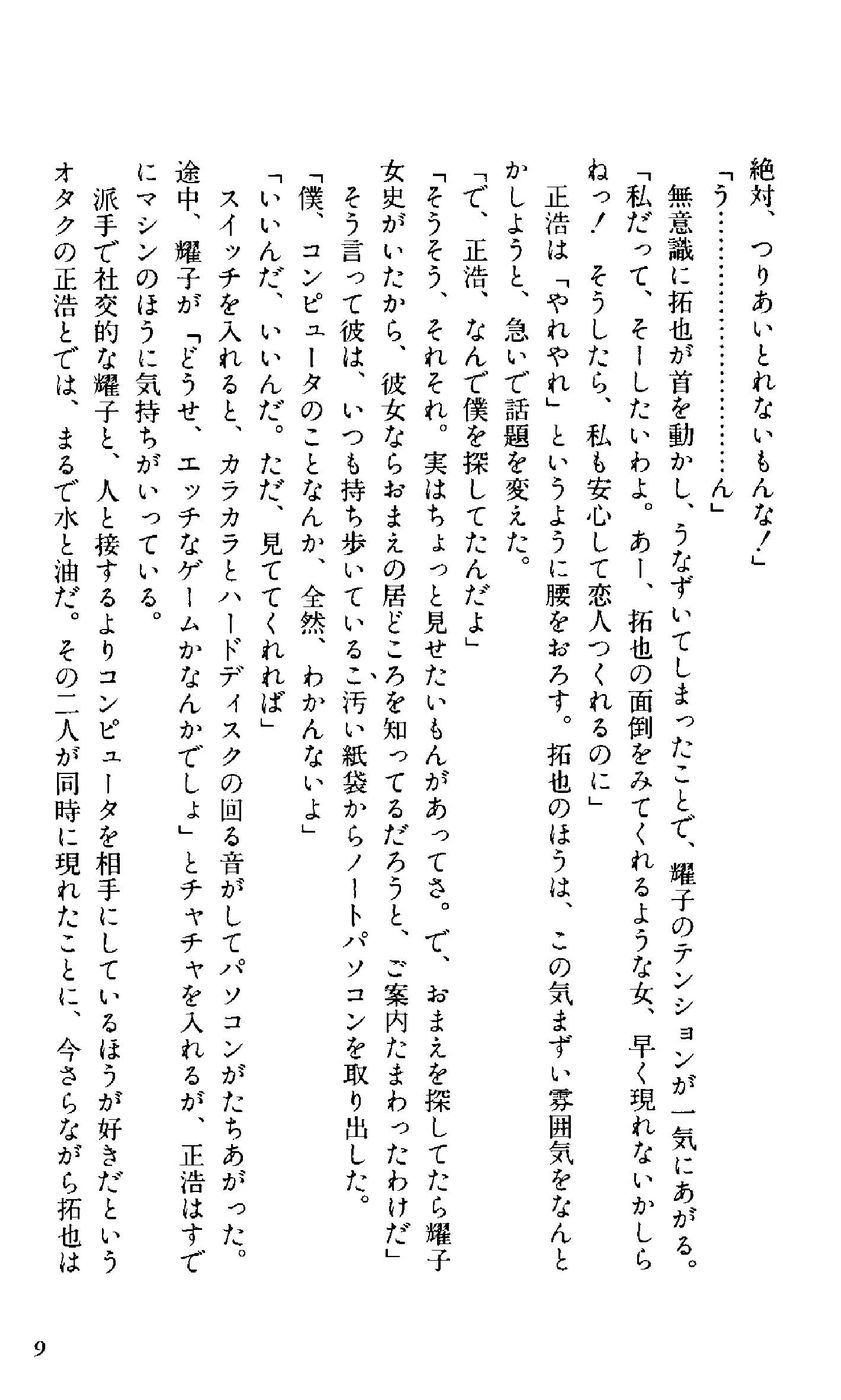 絶対、つりあいとれないもんな！」
「う……………………ん」
　無意識に拓也が首を動かし、うなずいてしまったことで、耀子のテンションが一気にあがる。
「私だって、そーしたいわよ。あー、拓也の面倒をみてくれるような女、早く現れないかしら
ねっ！　そうしたら、私も安心して恋人つくれるのに」
　正浩は「やれやれ」というように腰をおろす。拓也のほうは、この気まずい雰囲気をなんと
かしようと、急いで話題を変えた。
「で、正浩、なんで僕を探してたんだよ」
「そうそう、それそれ。実はちょっと見せたいもんがあってさ。で、おまえを探してたら耀子
女史がいたから、彼女ならおまえの居どころを知ってるだろうと、ご案内たまわったわけだ」
　そう言って彼は、いつも持ち歩いているこ汚い紙袋からノートパソコンを取り出した。
「僕、コンピュータのことなんか、全然、わかんないよ」
「いいんだ、いいんだ。ただ、見ててくれれば」
　スイッチを入れると、カラカラとハードディスクの回る音がしてパソコンがたちあがった。
途中、耀子が「どうせ、エッチなゲームかなんかでしょ」とチャチャを入れるが、正浩はすで
にマシンのほうに気持ちがいっている。
　派手で社交的な耀子と、人と接するよりコンピュータを相手にしているほうが好きだという
オタクの正浩とでは、まるで水と油だ。その二人が同時に現れたことに、今さらながら拓也は
9